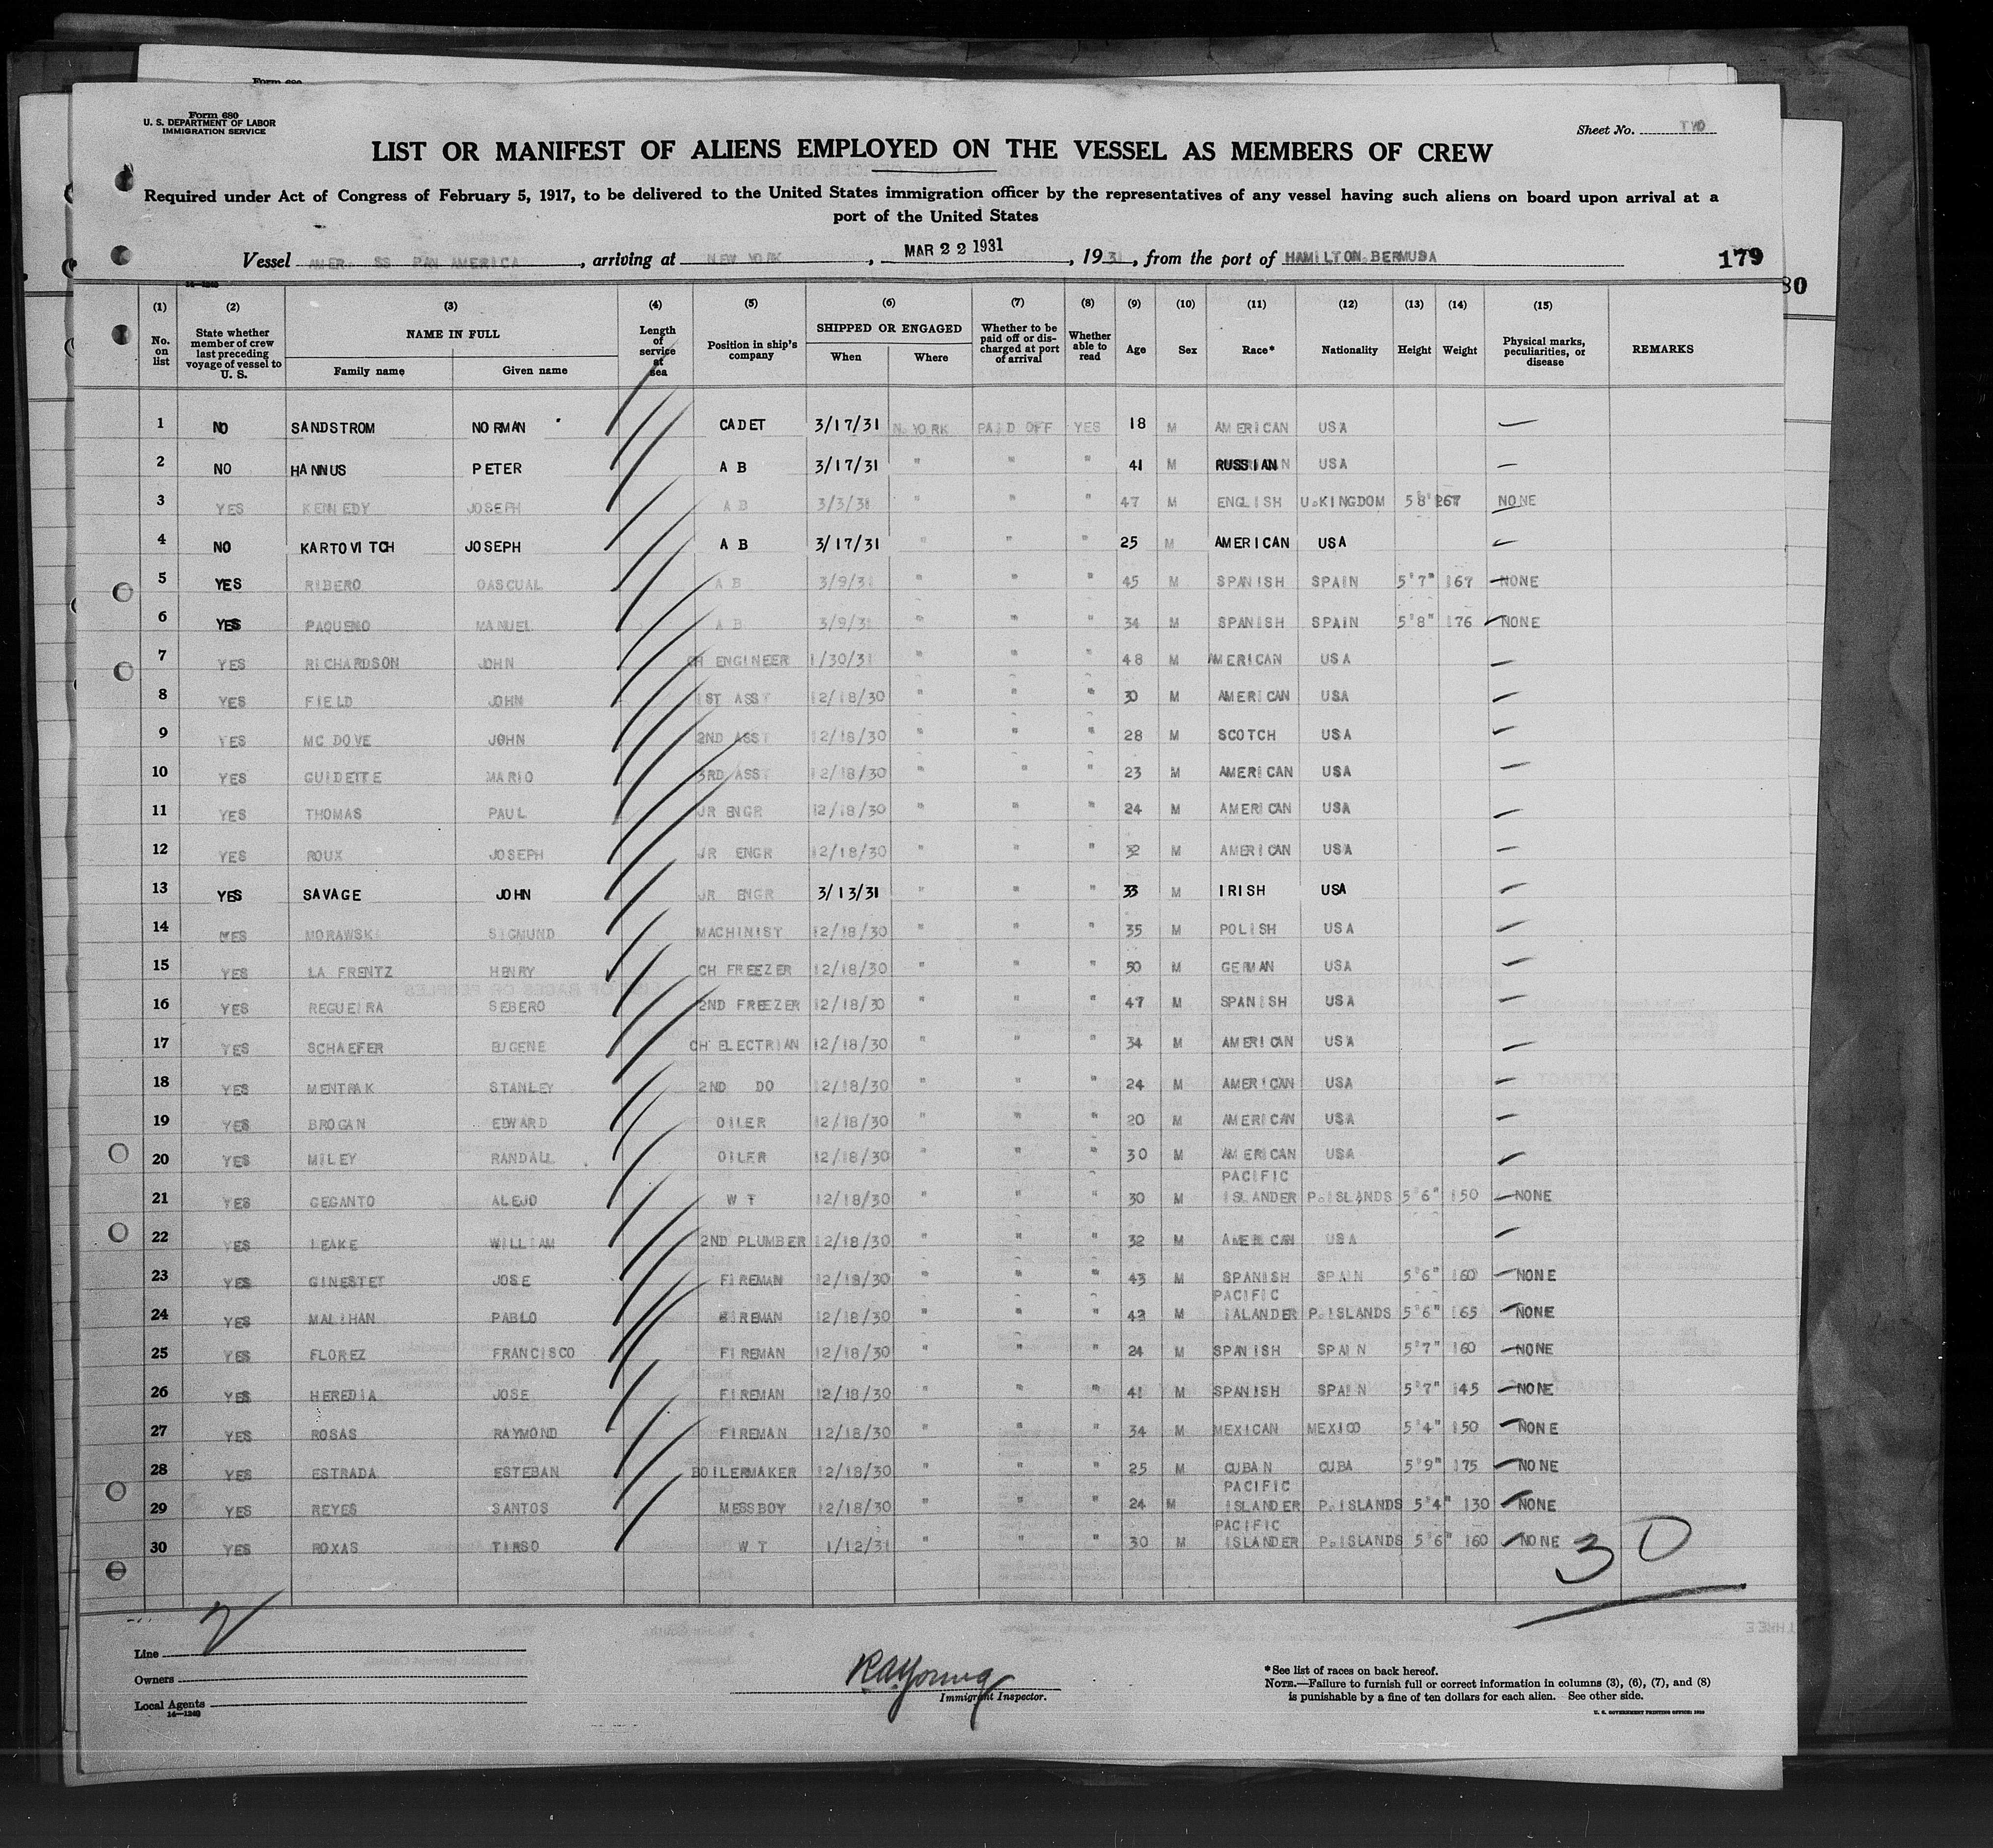 Form 680
U. S. DEPARTMENT OF LABOR
IMMIGRATION SERVICE
Sheet No. TWO
LIST OR MANIFEST OF ALIENS EMPLOYED ON THE VESSEL AS MEMBERS OF CREW
Required under Act of Congress of February 5, 1917, to be delivered to the United States immigration officer by the representatives of any vessel having such aliens on board upon arrival at a
port of the United States
Vessel AMER. SS PAN AMERICA, arriving at NEW YORK, MAR 22 1931, 1931, from the port of HAMILTON.BERMUDA 179
80
(1) (2) (3) (4) (5) (6) (7) (8) (9) (10) (11) (12) (13) (14) (15)
No. on list State whether member of crew last preceding voyage of vessel to U. S. NAME IN FULL Family name Given name Length of service at sea Position in ship's company SHIPPED OR ENGAGED When Where Whether to be paid off or discharged at port of arrival Whether able to read Age Sex Race* Nationality Height Weight Physical marks, peculiarities, or disease REMARKS
1 NO SANDSTROM NORMAN CADET 3/17/31 N.YORK PAID OFF YES 18 M AMERICAN USA —
2 NO HANNUS PETER A B 3/17/31 " " " 41 M RUSSIAN USA —
3 YES KENNEDY JOSEPH A B 3/3/31 " " " 47 M ENGLISH U.KINGDOM 5'8" 167 NONE
4 NO KARTOVITCH JOSEPH A B 3/17/31 " " " 25 M AMERICAN USA —
5 YES RIBERO OASCUAL A B 3/9/31 " " " 45 M SPANISH SPAIN 5'7" 167 NONE
6 YES PAQUENO MANUEL A B 3/9/31 " " " 34 M SPANISH SPAIN 5'8" 176 NONE
7 YES RICHARDSON JOHN CH ENGINEER 1/30/31 " " " 48 M AMERICAN USA —
8 YES FIELD JOHN 1ST ASST 12/18/30 " " " 30 M AMERICAN USA —
9 YES MC DOVE JOHN 2ND ASST 12/18/30 " " " 28 M SCOTCH USA —
10 YES GUIDETTE MARIO 3RD ASST 12/18/30 " " " 23 M AMERICAN USA —
11 YES THOMAS PAUL JR ENGR 12/18/30 " " " 24 M AMERICAN USA —
12 YES ROUX JOSEPH JR ENGR 12/18/30 " " " 32 M AMERICAN USA —
13 YES SAVAGE JOHN JR ENGR 3/13/31 " " " 33 M IRISH USA —
14 YES MORAWSKI SIGMUND MACHINIST 12/18/30 " " " 35 M POLISH USA —
15 YES LA FRENTZ HENRY CH FREEZER 12/18/30 " " " 50 M GERMAN USA —
16 YES REGUEIRA SEBERO 2ND FREEZER 12/18/30 " " " 47 M SPANISH USA —
17 YES SCHAEFER EUGENE CH ELECTRIAN 12/18/30 " " " 34 M AMERICAN USA —
18 YES MENTRAK STANLEY 2ND DO 12/18/30 " " " 24 M AMERICAN USA —
19 YES BROGAN EDWARD OILER 12/18/30 " " " 20 M AMERICAN USA —
20 YES MILEY RANDALL OILER 12/18/30 " " " 30 M AMERICAN USA —
21 YES GEGANTO ALEJO W T 12/18/30 " " " 30 M PACIFIC ISLANDER P.ISLANDS 5'6" 150 NONE
22 YES LEAKE WILLIAM 2ND PLUMBER 12/18/30 " " " 32 M AMERICAN USA —
23 YES GINESTET JOSE FIREMAN 12/18/30 " " " 43 M SPANISH SPAIN 5'6" 160 NONE
24 YES MALIHAN PABLO FIREMAN 12/18/30 " " " 42 M PACIFIC IALANDER P.ISLANDS 5'6" 165 NONE
25 YES FLOREZ FRANCISCO FIREMAN 12/18/30 " " " 24 M SPANISH SPAIN 5'7" 160 NONE
26 YES HEREDIA JOSE FIREMAN 12/18/30 " " " 41 M SPANISH SPAIN 5'7" 145 NONE
27 YES ROSAS RAYMOND FIREMAN 12/18/30 " " " 34 M MEXICAN MEXICO 5'4" 150 NONE
28 YES ESTRADA ESTEBAN BOILERMAKER 12/18/30 " " " 25 M CUBAN CUBA 5'9" 175 NONE
29 YES REYES SANTOS MESSBOY 12/18/30 " " " 24 M PACIFIC ISLANDER P.ISLANDS 5'4" 130 NONE
30 YES ROXAS TIRSO W T 1/12/31 " " " 30 M PACIFIC ISLANDER P.ISLANDS 5'6" 160 NONE
30
Line
Owners
Local Agents
14—1240
R A Young
Immigrant Inspector.
*See list of races on back hereof.
NOTE.—Failure to furnish full or correct information in columns (3), (6), (7), and (8)
is punishable by a fine of ten dollars for each alien. See other side.
U. S. GOVERNMENT PRINTING OFFICE: 1930